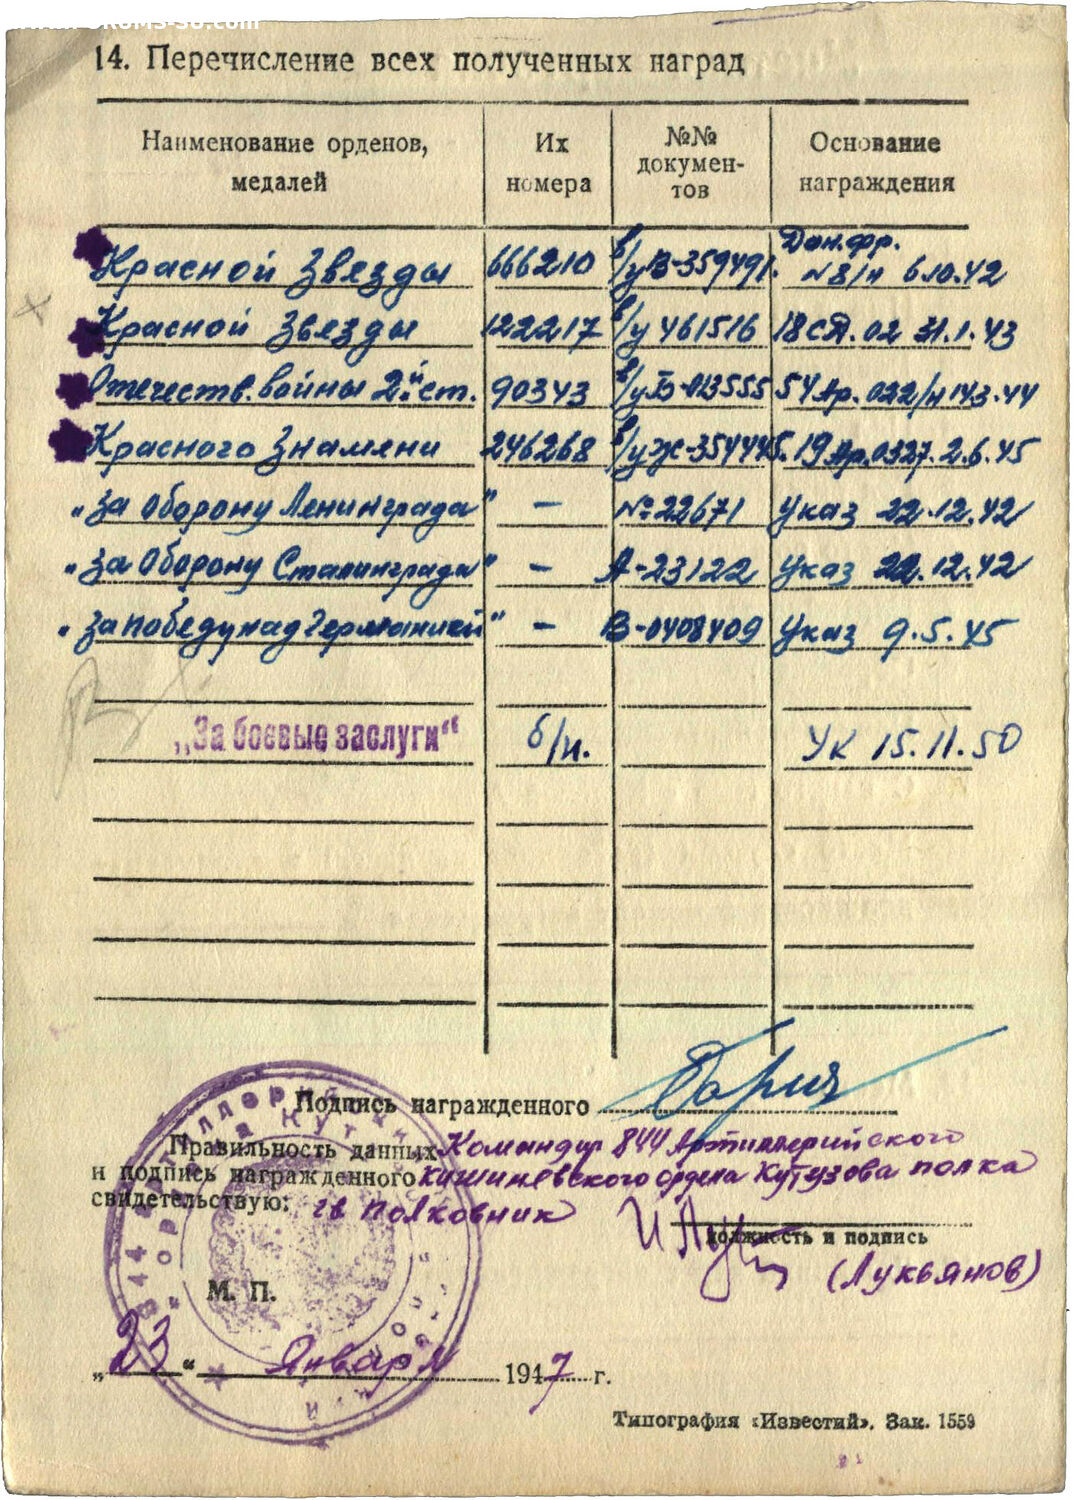 14. Перечисление всех полученных наград
Наименование орденов, медалей | Их номера | №№ докумен-тов | Основание награждения
Красной Звезды 666210 в/у В-359491. Дон.фр. №8/н 6.10.42
Красной Звезды 122217 в/у 461516 18 СД. 02 31.1.43
Отечеств. войны 2й ст. 90343 в/у Б-013555 54 Ар. 022/н 14.3.44
Красного Знамени 246268 в/у Ж-354445. 19 Ар. 0327. 2.6.45
"За Оборону Ленинграда" — №22671 Указ 22.12.42
"За Оборону Сталинграда" — А-23122 Указ 22.12.42
"За победу над Германией" — В-0408409 Указ 9.5.45
„За боевые заслуги“ б/н. УК 15.11.50
Подпись награжденного
Правильность данных Командир 844 Артиллерийского
и подпись награжденного Кишиневского ордена Кутузова полка
свидетельствую: гв полковник
должность и подпись
(Лукьянов)
М. П.
„23“ Января 1947 г.
Типография «Известий». Зак. 1559